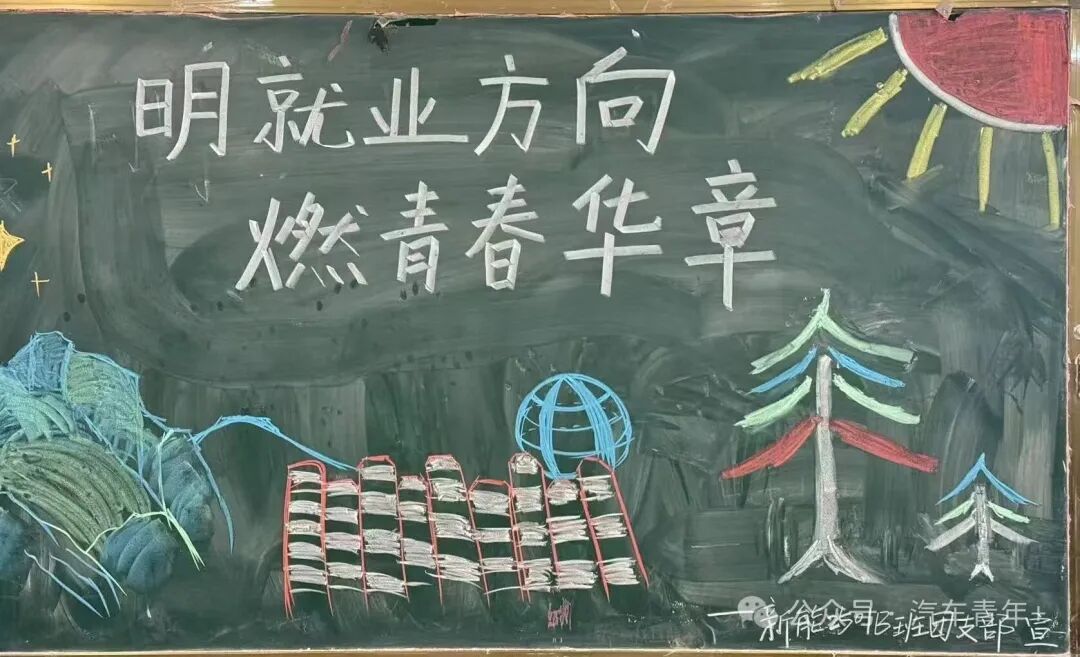 明就业方向
燃青春华章
公众号·汽车青年
一新能2591B班团支部 宣